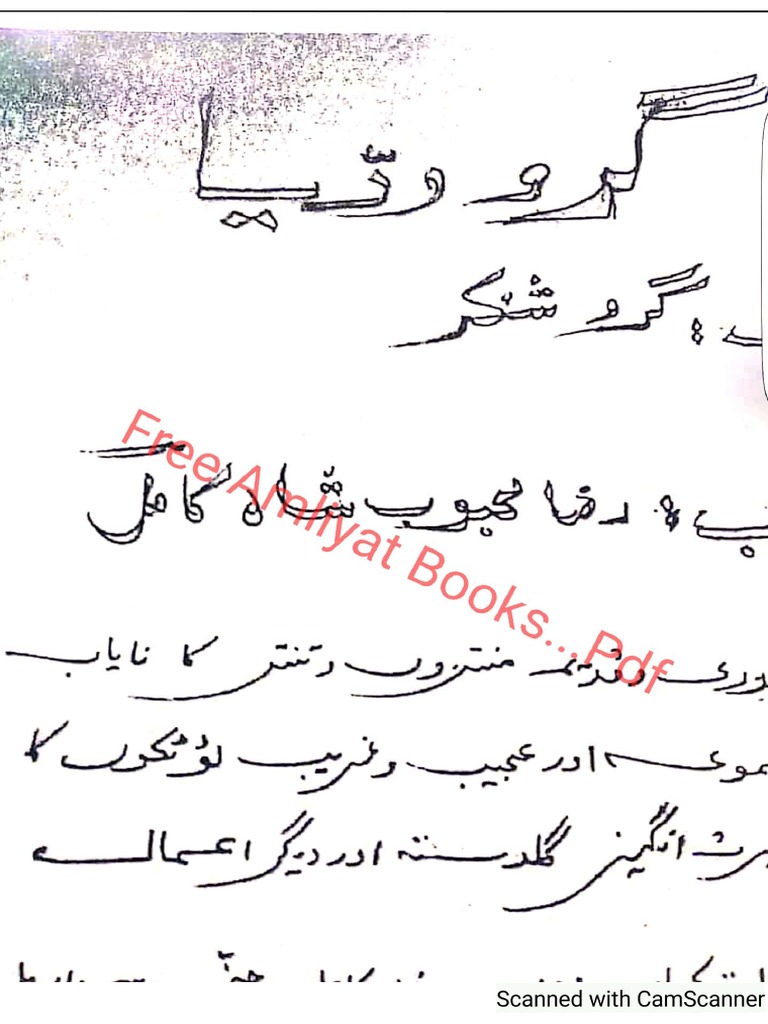 گرو ودّیا
: گرو شنکر
ب : رضا محبوب شاہ کامل
وقدیم منتروں وتنتر کا نایاب
اور عجیب وغریب ٹوٹکوں کا
انگیز گلدستہ اور دیگر اعمال
Free Amliyat Books...Pdf
Scanned with CamScanner